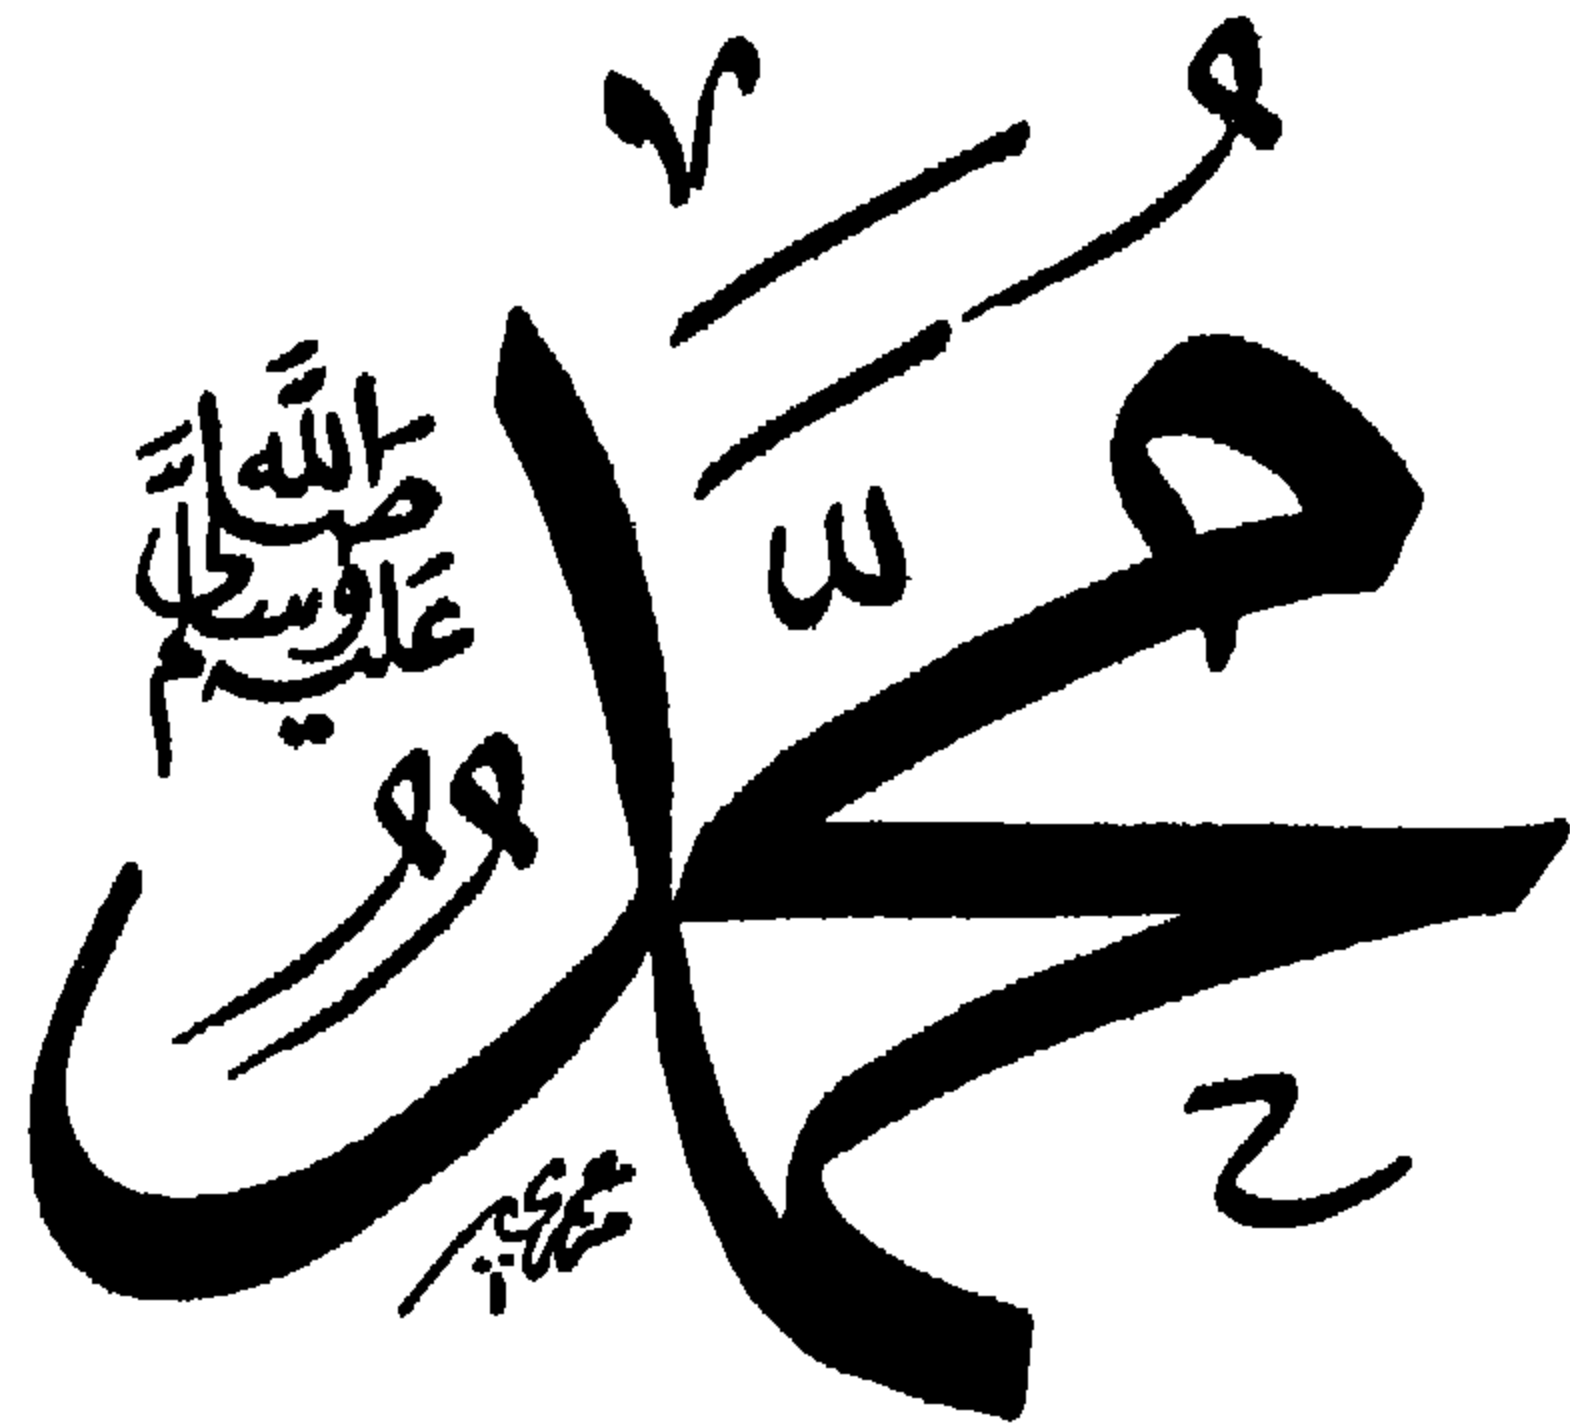 مُحَمَّدٌ
صَلَّى اللَّه عَلَيه وَسَلَّم